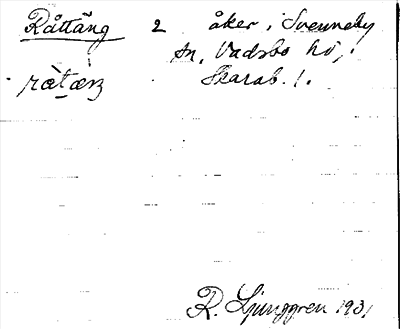 Råttäng 2 åker i Svenneby
sn, Vadsbo hd,
Skarab. l.
R. Ljunggren 1931